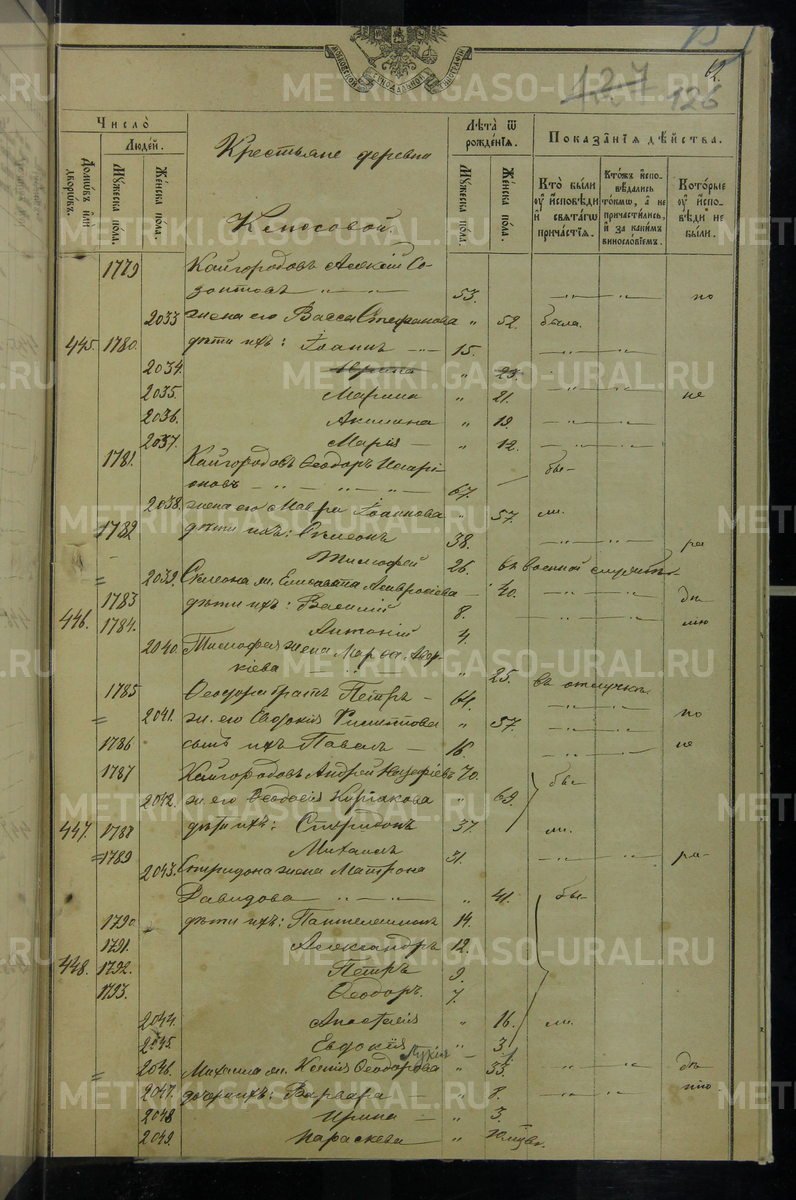 62.
127
126
Число̀
Людей.
Домовъ или дворовъ.
Мужеска пола.
Женска пола.
Крестьяне деревни
Клюсовой.
Лѣта ѿ рожденїя.
Мужеска пола.
Женска пола.
Показанїя дѣйства.
Кто были оу исповѣди и святагѡ причастїя.
Ктожъ исповѣдались токмѡ, а не причастились, и за какимъ винословїемъ.
Которые оу исповѣди не были.
1779 Кайгородовъ Алексій Со-
зонтовъ 53. по
2033 жена его Васса Стефанова „ 52. была.
445. 1780. дѣти ихъ: Іоаннъ 15.
2034. „ 23.
2035. Марина „ 21. не
2036. Акилина „ 19.
2037. Марія „ 12.
1781. Кайгородовъ Ѳеодоръ
оновъ 67. бы-
2038. жена его Мавра Іоаннова „ 57. ли.
1782 дѣти ихъ: Симеонъ 38. ра
Тимофей 26. въ военной службѣ
2039. Симеона ж. Елисавета Амвросіева 40. дѣ
1783 дѣти ихъ: Василій 8.
446. 1784. Антоній 4. нію
2040. Тимофея жена Марья
кіева „ 25. въ отлучкѣ
1785 Ѳеодора братъ Петръ 64.
2041. ж. его Евдокія Филиппова „ 57. по
1786 сынъ ихъ Павелъ 16 не
1787 Кайгородовъ Андрей 70. бы-
2042. ж. его Ѳеодосія Киріакова „ 69.
447. 1788 дѣти ихъ: Спиридонъ 37. ли.
1789 Михаилъ 31. ра-
2043. Спиридона жена Матрона
Давидова „ 41. бы-
1790 дѣти ихъ: Пантелеимонъ 14.
1791. Александръ 12.
448. 1792. Петръ 9.
1793. Ѳеодоръ. 7.
2044. Анастасія „ 16. ли.
2045. Евдокія „ 3
2046. Михаила ж. Ксенія Ѳеодорова „ 33. дѣ
2047. дочери ихъ: Варвара „ 8. нію
2048 Ирина „ 3.
2049. Параскева „
METRIKI.GASO-URAL.RU